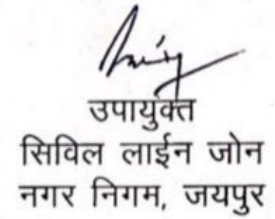 उपायुक्त
सिविल लाईन जोन
नगर निगम, जयपुर